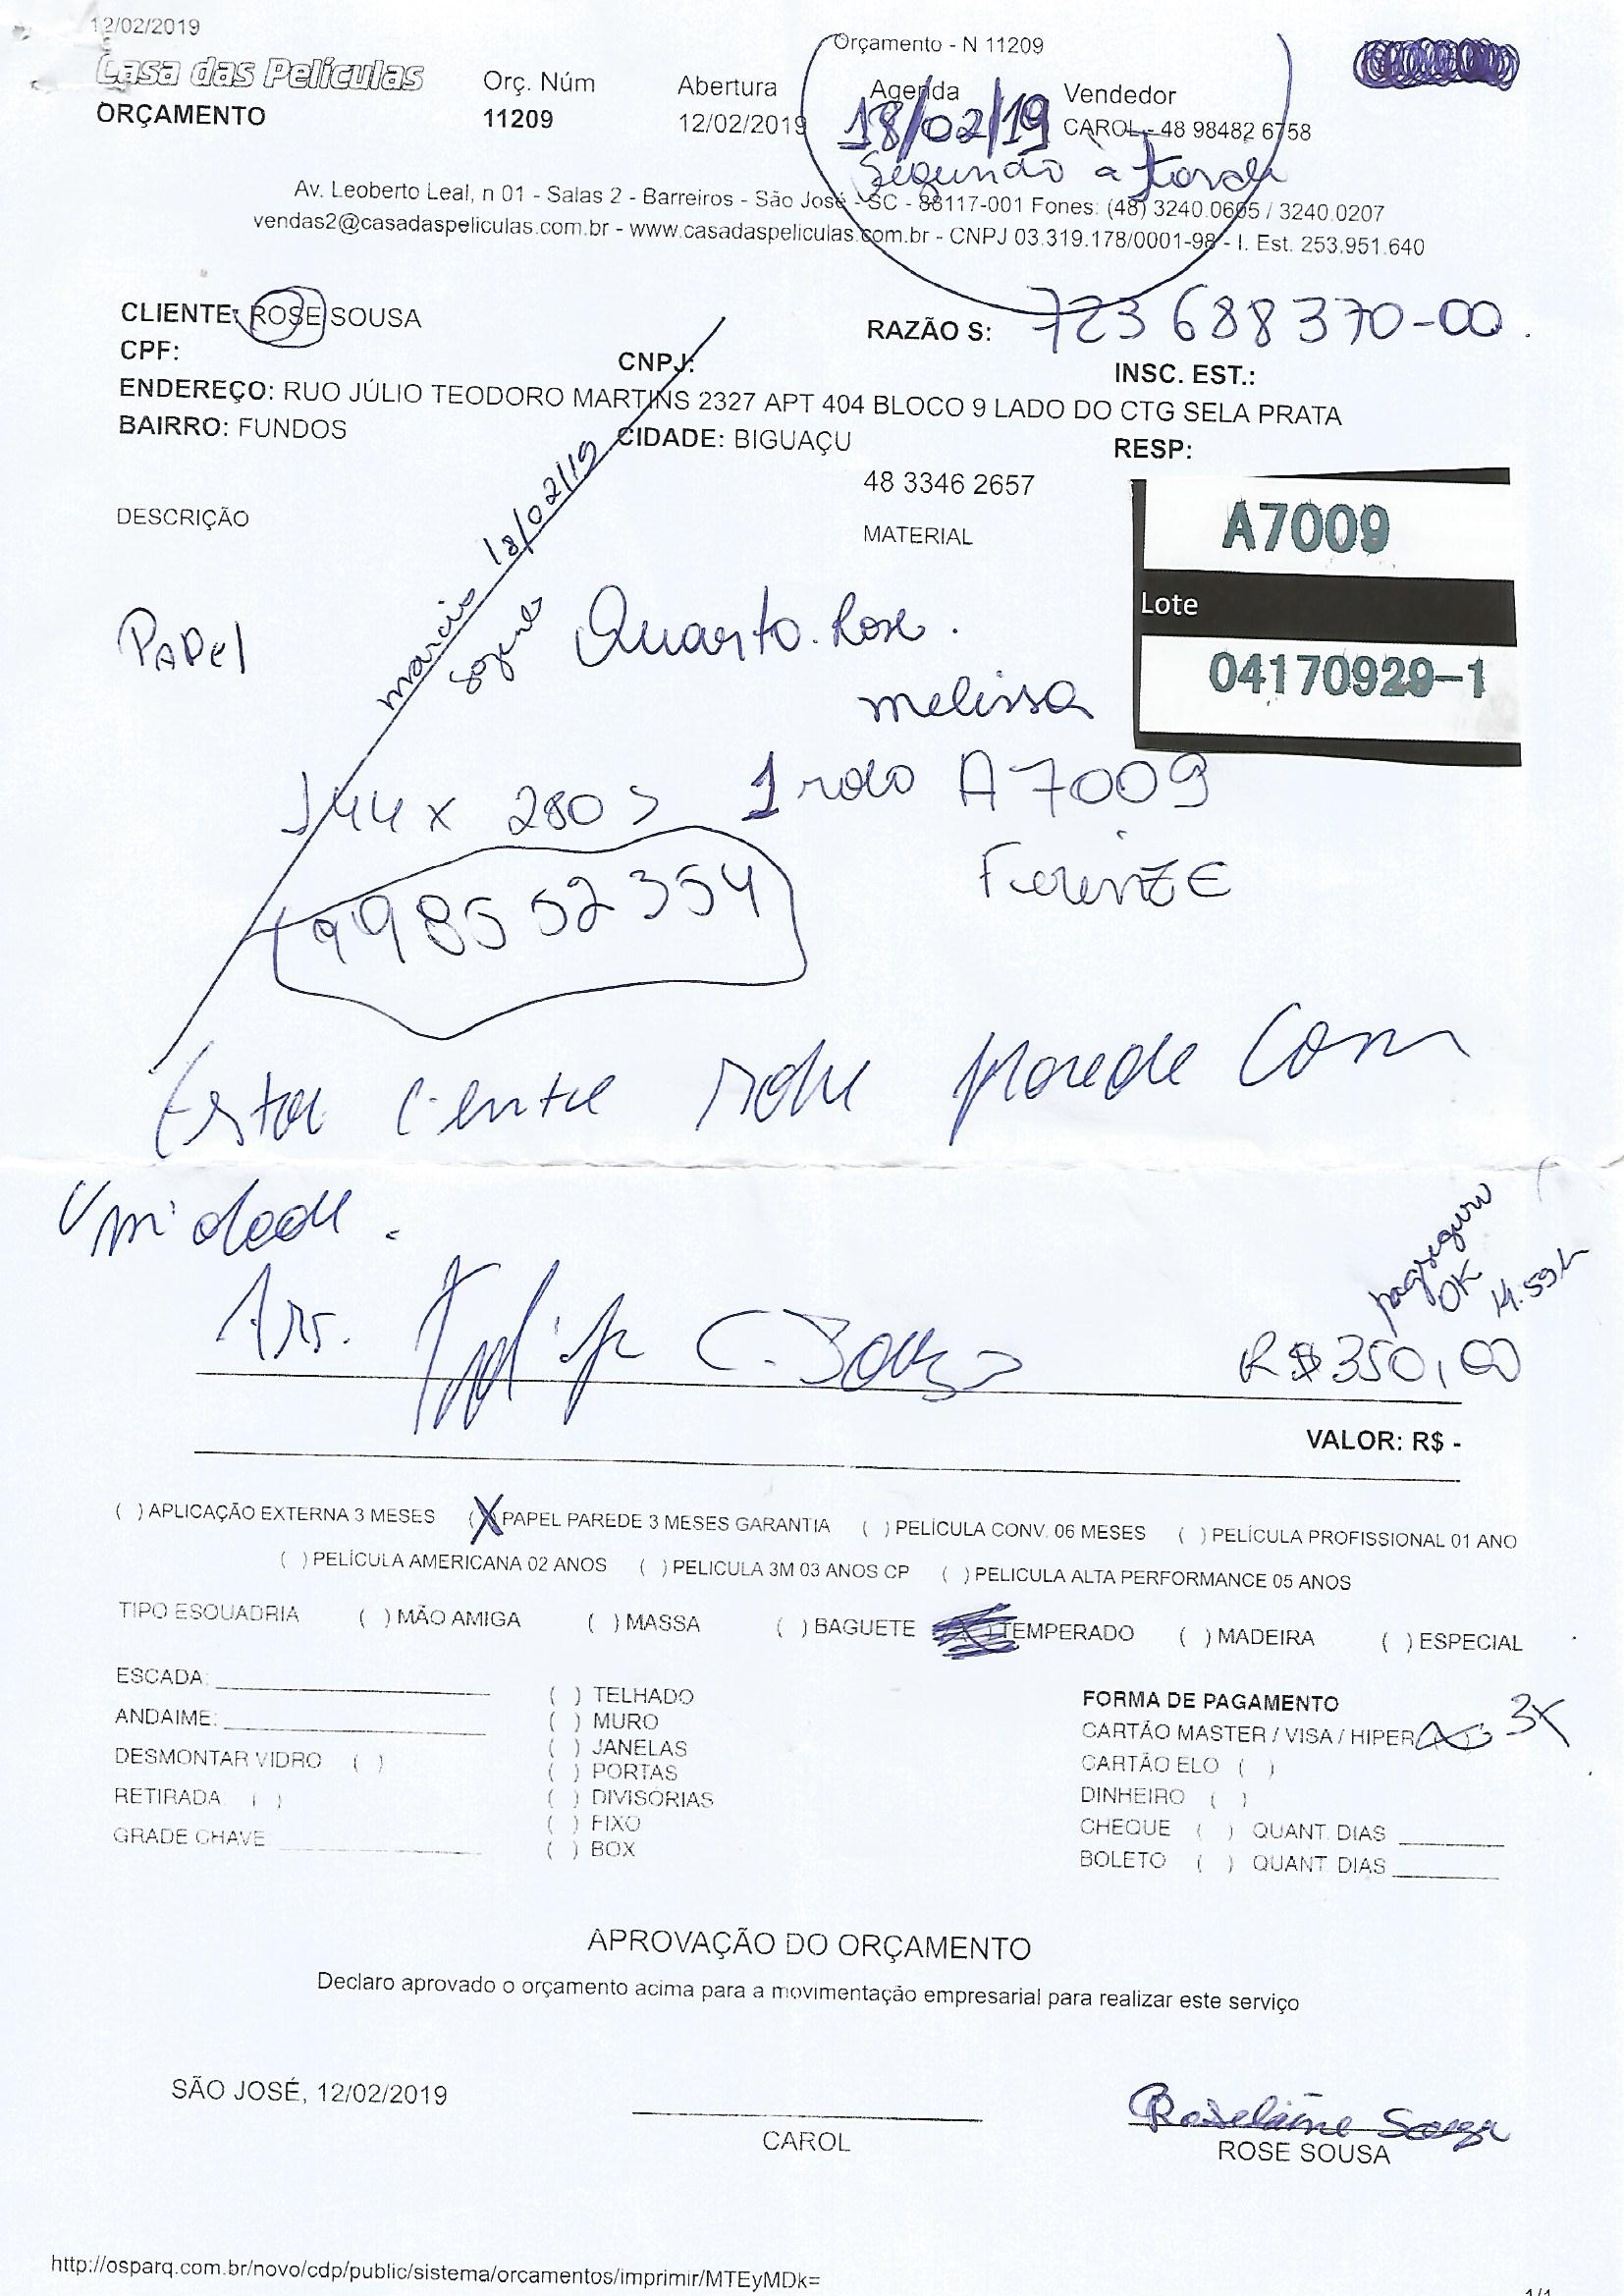 12/02/2019
Orçamento - N 11209
Casa das Películas
ORÇAMENTO
Orç. Núm
11209
Abertura
12/02/2019
Agenda
18/02/19
Segunda à tarde
Vendedor
CAROL - 48 98482 6758
Av. Leoberto Leal, n 01 - Salas 2 - Barreiros - São José - SC - 88117-001 Fones: (48) 3240.0605 / 3240.0207
vendas2@casadaspeliculas.com.br - www.casadaspeliculas.com.br - CNPJ 03.319.178/0001-98 - I. Est. 253.951.640
CLIENTE: ROSE SOUSA
RAZÃO S: 723688370-00.
CPF:
CNPJ:
INSC. EST.:
ENDEREÇO: RUO JÚLIO TEODORO MARTINS 2327 APT 404 BLOCO 9 LADO DO CTG SELA PRATA
BAIRRO: FUNDOS
CIDADE: BIGUAÇU
RESP:
48 3346 2657
DESCRIÇÃO
MATERIAL
A7009
Lote
04170929-1
marcio 18/02/19
PAPel
Quarto. Rose.
melissa
144 x 280 > 1 rolo A7009
998552354
Estou ciente sobre parede com
Umidade.
Ass. C. Souza
pagseguro
OK 14:59h
R$350,00
VALOR: R$ -
( ) APLICAÇÃO EXTERNA 3 MESES (X) PAPEL PAREDE 3 MESES GARANTIA ( ) PELÍCULA CONV. 06 MESES ( ) PELÍCULA PROFISSIONAL 01 ANO
( ) PELÍCULA AMERICANA 02 ANOS ( ) PELICULA 3M 03 ANOS CP ( ) PELICULA ALTA PERFORMANCE 05 ANOS
TIPO ESQUADRIA ( ) MÃO AMIGA ( ) MASSA ( ) BAGUETE TEMPERADO ( ) MADEIRA ( ) ESPECIAL
ESCADA:
ANDAIME:
DESMONTAR VIDRO ( )
RETIRADA ( )
GRADE CHAVE
( ) TELHADO
( ) MURO
( ) JANELAS
( ) PORTAS
( ) DIVISORIAS
( ) FIXO
( ) BOX
FORMA DE PAGAMENTO
CARTÃO MASTER / VISA / HIPER 3X
CARTÃO ELO ( )
DINHEIRO ( )
CHEQUE ( ) QUANT. DIAS
BOLETO ( ) QUANT. DIAS
APROVAÇÃO DO ORÇAMENTO
Declaro aprovado o orçamento acima para a movimentação empresarial para realizar este serviço
SÃO JOSÉ, 12/02/2019
CAROL
Roselaine Souza
ROSE SOUSA
http://osparq.com.br/novo/cdp/public/sistema/orcamentos/imprimir/MTEyMDk=
1/1